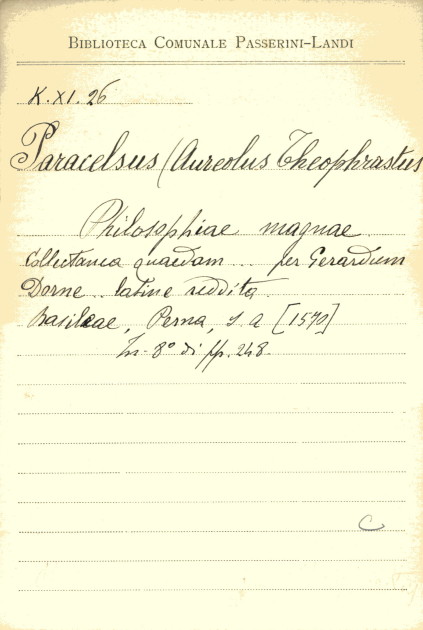 BIBLIOTECA COMUNALE PASSERINI-LANDI
K. XI. 26
Paracelsus (Aureolus Theophrastus
Philosophiae magnae
Collectanea quaedam .. per Gerardum
Dorne .. latine reddita.
Basileae, Perna, s a [1570]
In- 8° di pp. 248.
C